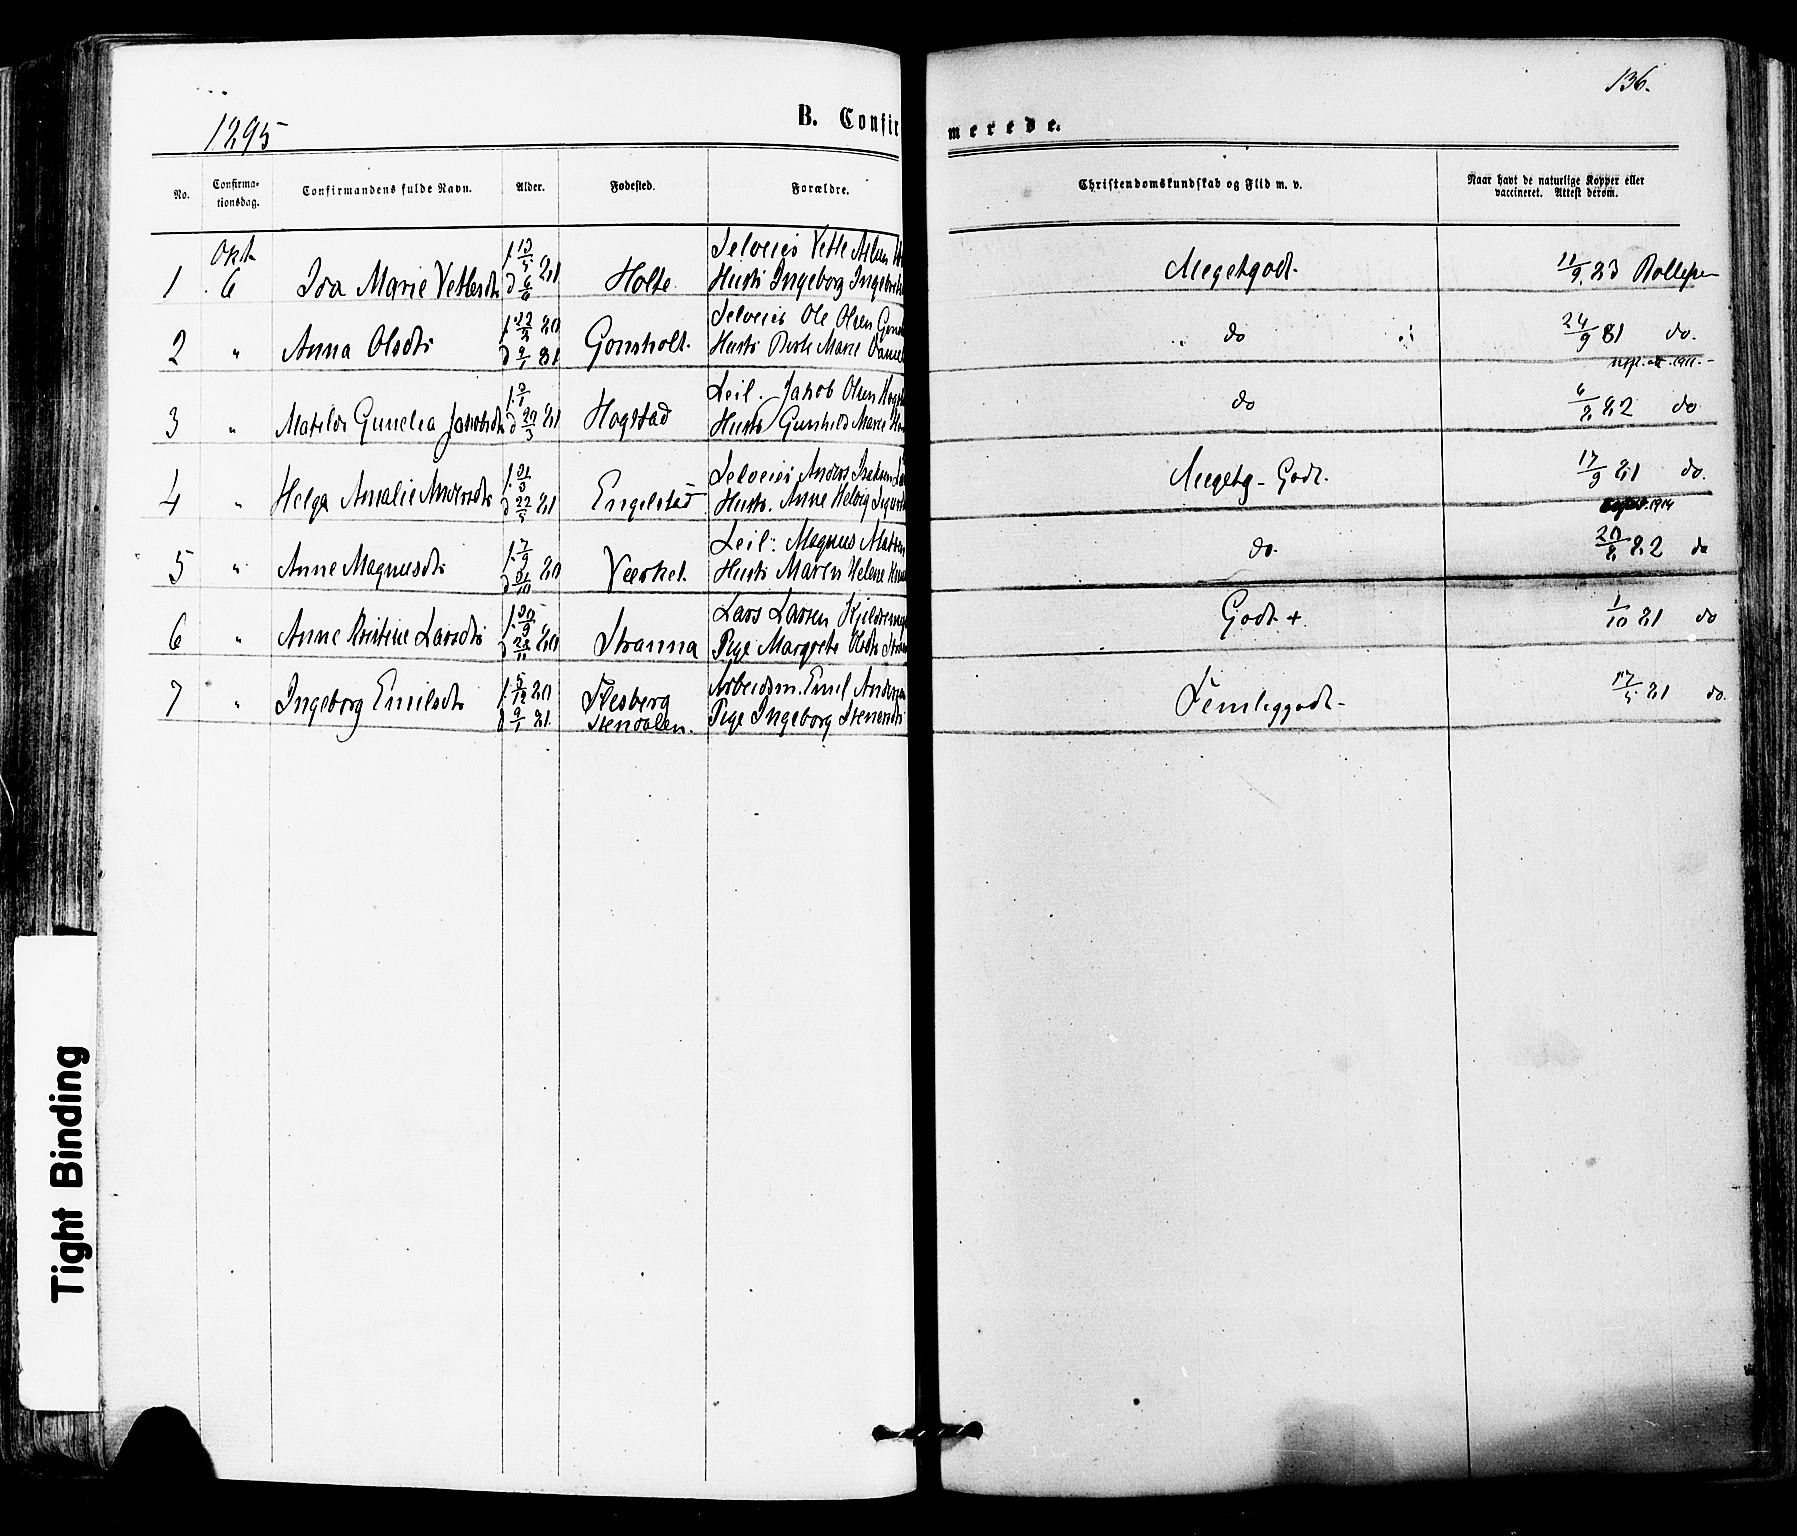 136.
1895
B. Confirmerede.
No.
Confirma-
tionsdag.
Confirmandens fulde Navn.
Alder.
Fødested.
Forældre.
Christendomskundskab og Flid m. v.
Naar havt de naturlige Kopper eller
vaccineret. Attest derom.
Okt
1 6 Ida Marie Vetlesdt f. 13/5 d 6/6 81 Holte Selveier Vetle
Hustr Ingeborg Megetgodt. 11/9 83
2 " Anna Olsdt f. 22/ 80 d 9/1 81 Gomsholt. Selveier Ole Olsen
Hustr Marie do 24/9 81 do.
3 " Matilde Gunelia f. d 20/3 81 Hogstad Leil. Jakob Olsen
Hustr Gunhild Marie do 6/8 82 do
4 " Helga Amalie Andersdt f. 21/3 d 22/5 81 Engelstad Selveier Anders
Hustr. Anne Helvig Megetg - Godt. 17/9 81 do.
1914
5 " Anne Magnusdt f. 7/9 d 31/10 80 Værket. Leil: Magnus
Hustr Maren Helene do. 20/8 82 do
6 " Anne Kristine Larsdt f. 20/9 d 28/11 80 Stranna Lars Larsen
Pige Margrete Olsdt Godt + 1/10 81 do
7 " Ingeborg Emilsdt f. 5/12 80 d 9/1 81 Flesberg
Stendalen. Arbeidsm. Emil Andersen
Pige Ingeborg Stensdt Temliggodt - 17/5 81 do.
Tight Binding